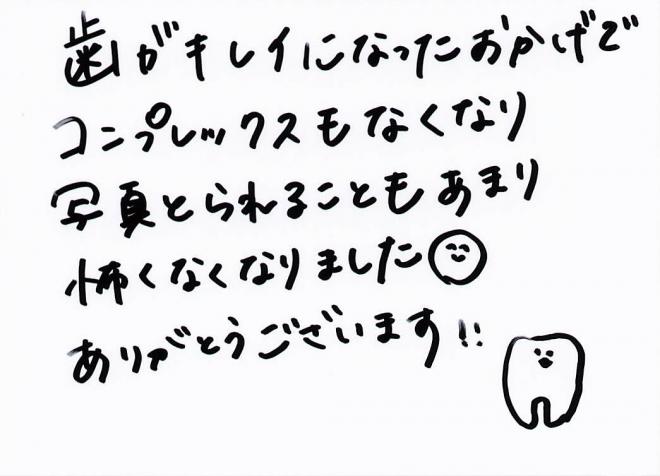 歯がキレイになったおかげで
コンプレックスもなくなり
写真とられることもあまり
怖くなくなりました
ありがとうございます!!